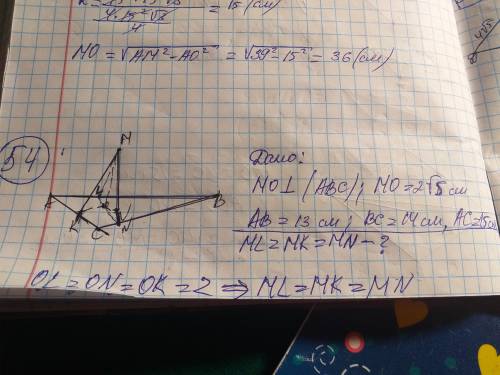 = 15 (см)
4·15²√3
4
MO = √AM²-AO² = √39²-15² = 36 (см)
4√3
54
M
A
B
K
C
N
L
Дано:
MO⊥(ABC); MO=2√3 см
AB = 13 см; BC = 14 см, AC=15 см
ML=MK=MN-?
OL=ON=OK=r ⇒ ML=MK=MN